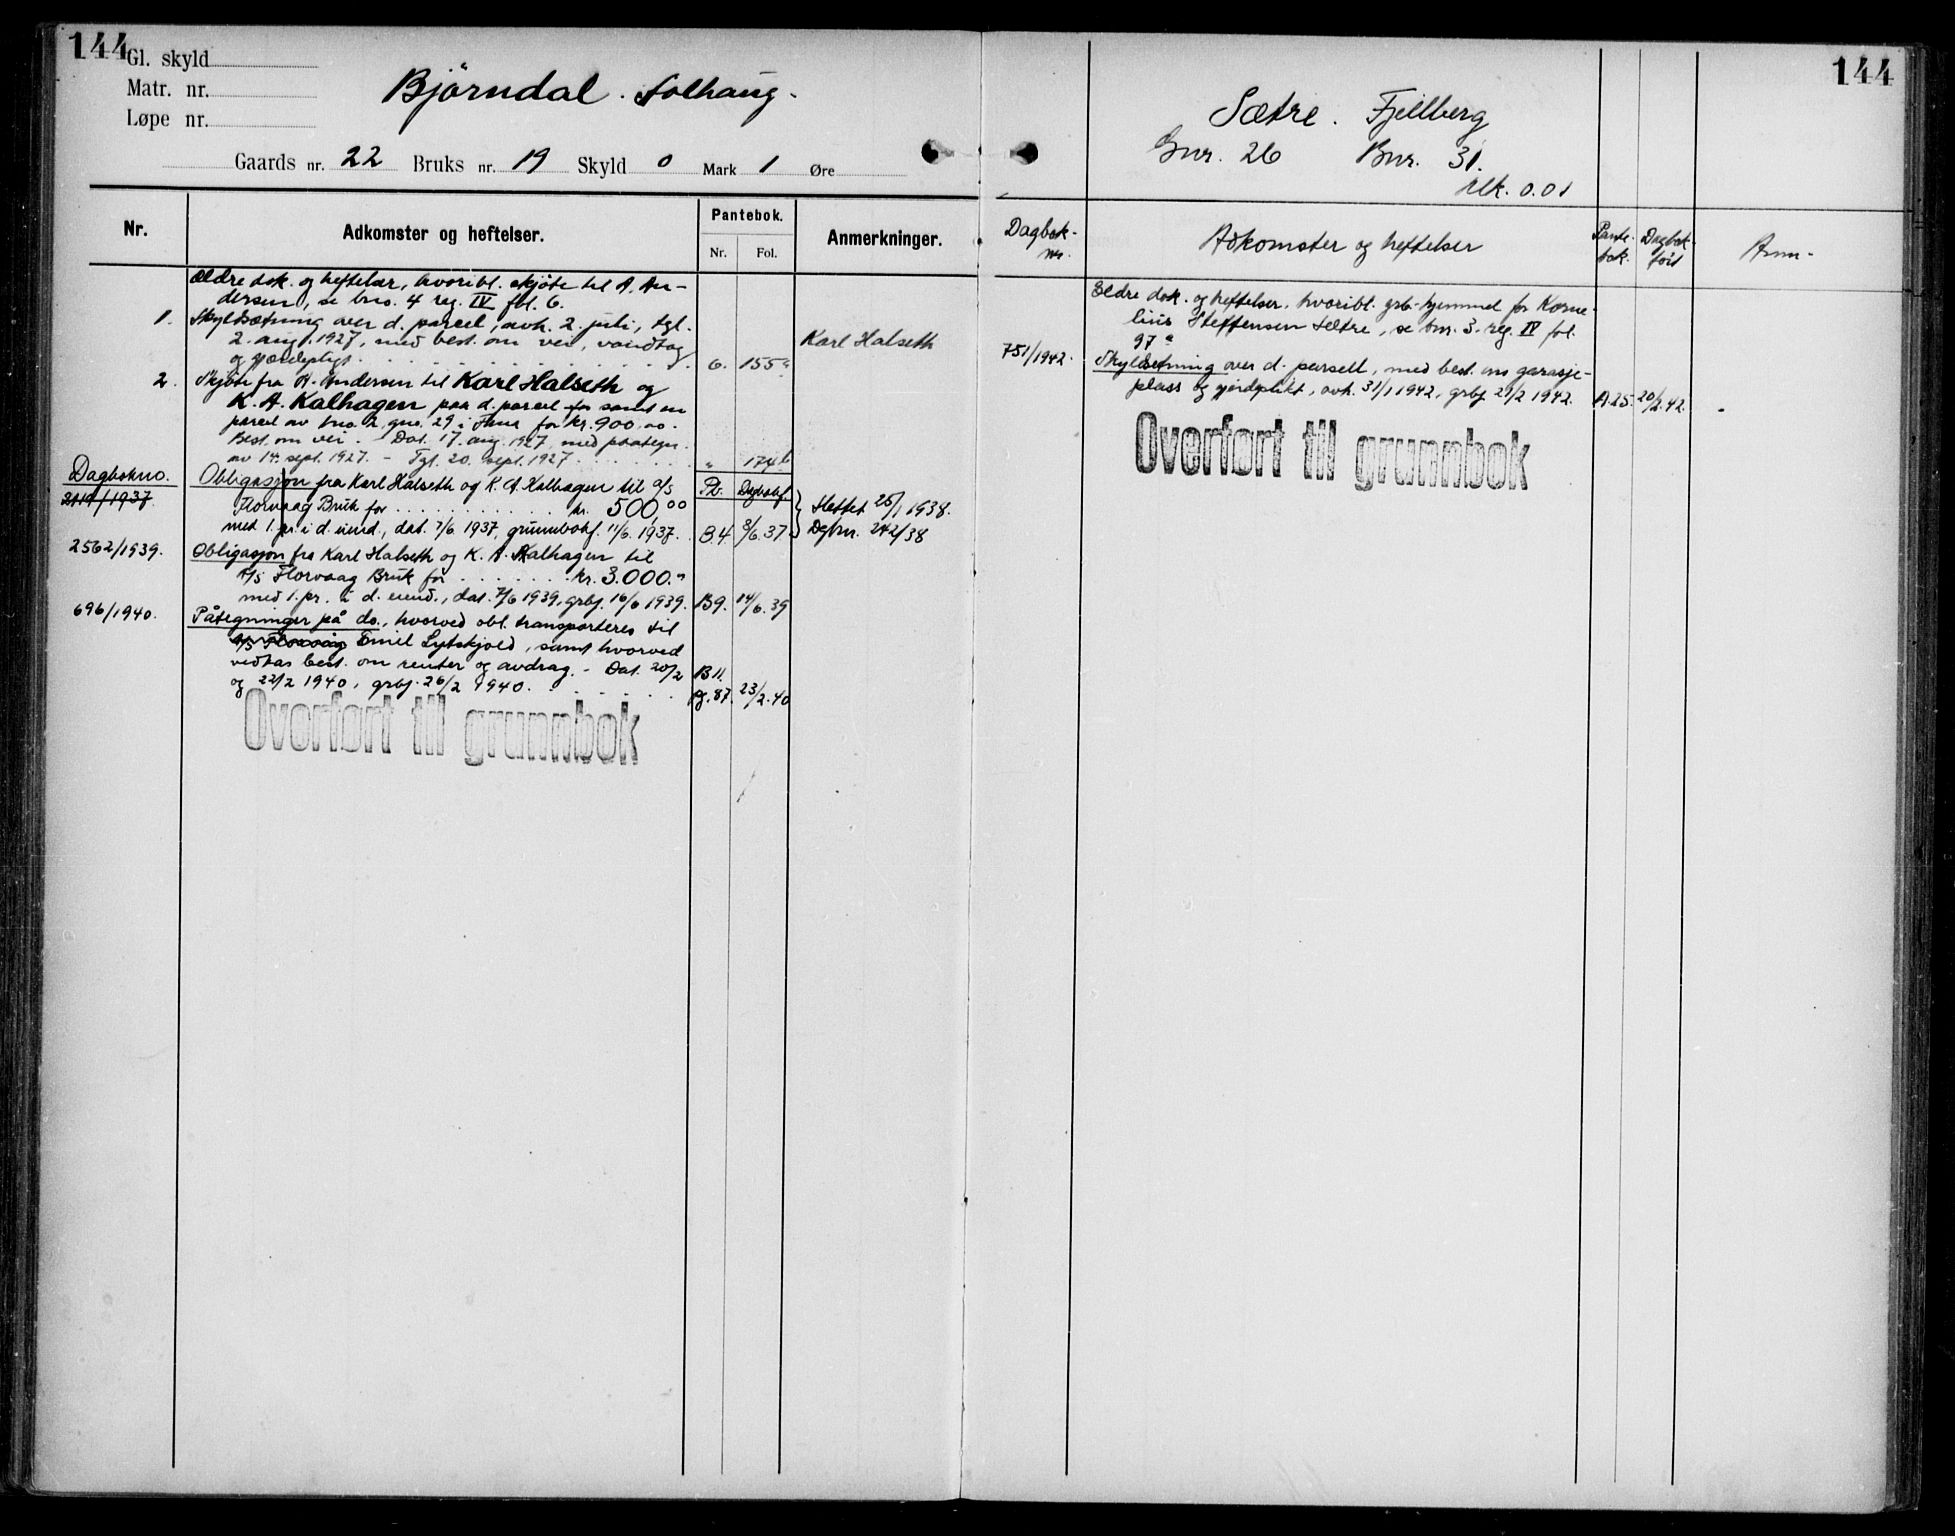 144
Gl. skyld
Matr. nr.
Løpe nr.
Bjørndal. Solhaug.
Gaards nr. 22 Bruks nr. 19 Skyld 0 Mark 1 Øre
Nr.
Adkomster og heftelser.
Pantebok.
Nr. Fol.
Anmerkninger.
Ældre dok. og heftelser, hvoribl. skjøte til A. An-
dersen, se bno. 4 reg. IV fol. 6.
1. Skyldsætning over d. parcel, avh. 2. juli, tgl.
2. aug. 1927, med best. om vei, vandtag
og gjærdepligt. 6. 155a
Karl Halseth
2. Skjøte fra A. Andersen til Karl Halseth og
K. A. Kalhagen paa d. parcel for samt en
parcel av bno. 2, gno. 29 i Fana for kr. 900.00.
Best. om vei. - Dat. 17. aug. 1927, med paategn.
av 14. sept. 1927. - Tgl. 20. sept. 1927 " 174b
Dagbokno.
2119/1937. Obligasjon fra Karl Halseth og K. A. Kalhagen til A/S Pb. Dagbokf.
Florvaag Bruk for kr. 500,00
med 1. pr. i d. eiend., dat. 7/6 1937, grunnbokf. 11/6 1937. B.4. 8/6.37
Slettet 25/1 1938.
Dgbnr. 242/38
2562/1939. Obligasjon fra Karl Halseth og K. A. Kalhagen til
A/S Florvaag Bruk for kr. 3.000.-
med 1. pr. i d. eiend., dat. 7/6 1939, grbf. 16/6 1939. B9. 14/6.39
696/1940. Påtegninger på do., hvorved obl. transporteres til
A/S Florvåg Emil Lytskjold, samt hvorved
vedtas best. om renter og avdrag. - Dat. 20/2 B11.
og 22/2 1940, grbf. 26/2 1940. pg. 87. 23/2.40
Overført til grunnbok
144
Sætre. Fjellberg
Gnr. 26 Bnr. 31.
Mk. 0.01
Dagbok-
nr.
Adkomster og heftelser
Pante-
bok.
Dagbok-
ført
Anm-
Eldre dok. og heftelser. hvoribl. grb-hjemmel for Korne-
lius Steffensen Sætre, se bnr. 3. reg. IV fol.
97a
751/1942. Skyldsetning over d. parsell, med best. om garasje-
plass og gjerdeplikt, avh. 31/1 1942, grbf 21/2 1942. A.25. 20/2.42.
Overført til grunnbok